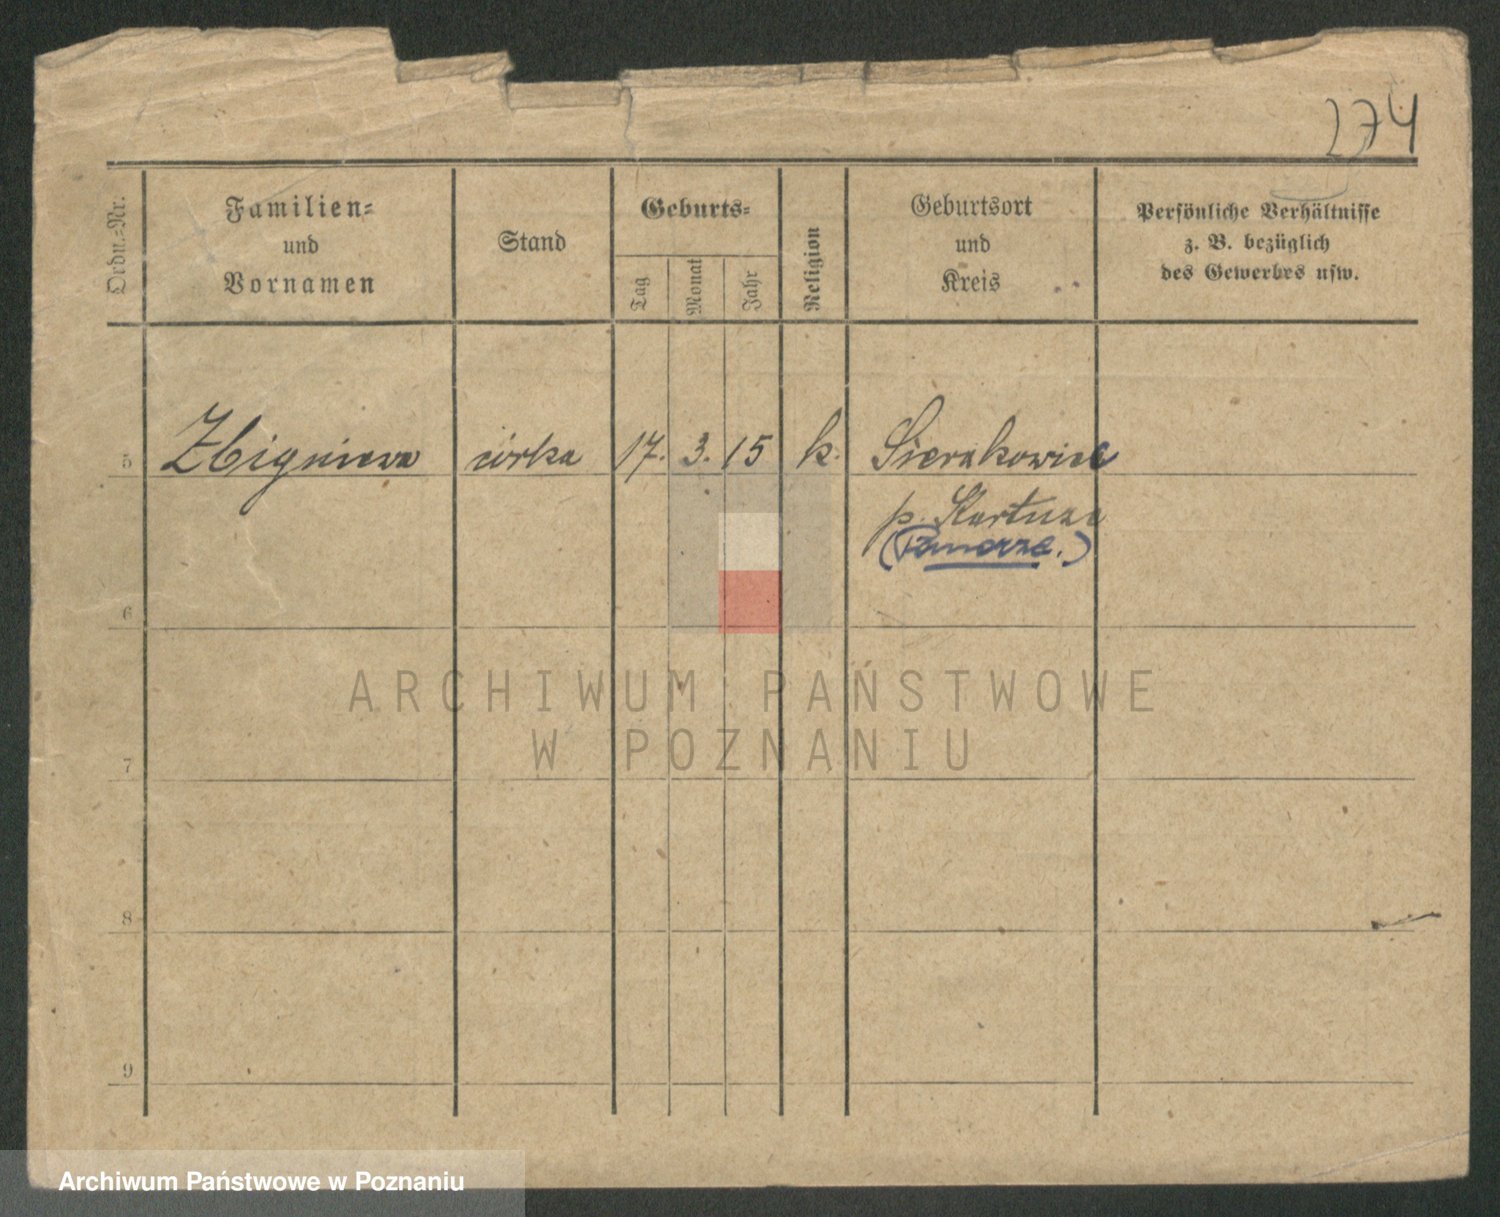 274
Ordn.-Nr.
Familien-
und
Vornamen
Stand
Geburts-
Tag
Monat
Jahr
Religion
Geburtsort
und
Kreis
Persönliche Verhältnisse
z. B. bezüglich
des Gewerbes usw.
5 Zbigniewa córka 17. 3. 15 k. Sierakowice
p. Kartuza
(Pomorze.)
6
7
8
9
ARCHIWUM PAŃSTWOWE
W POZNANIU
Archiwum Państwowe w Poznaniu